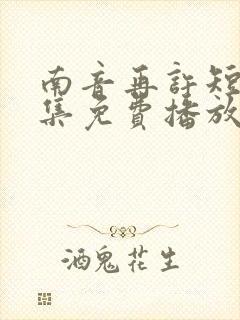 南音再許短
集免費播放
酒鬼花生